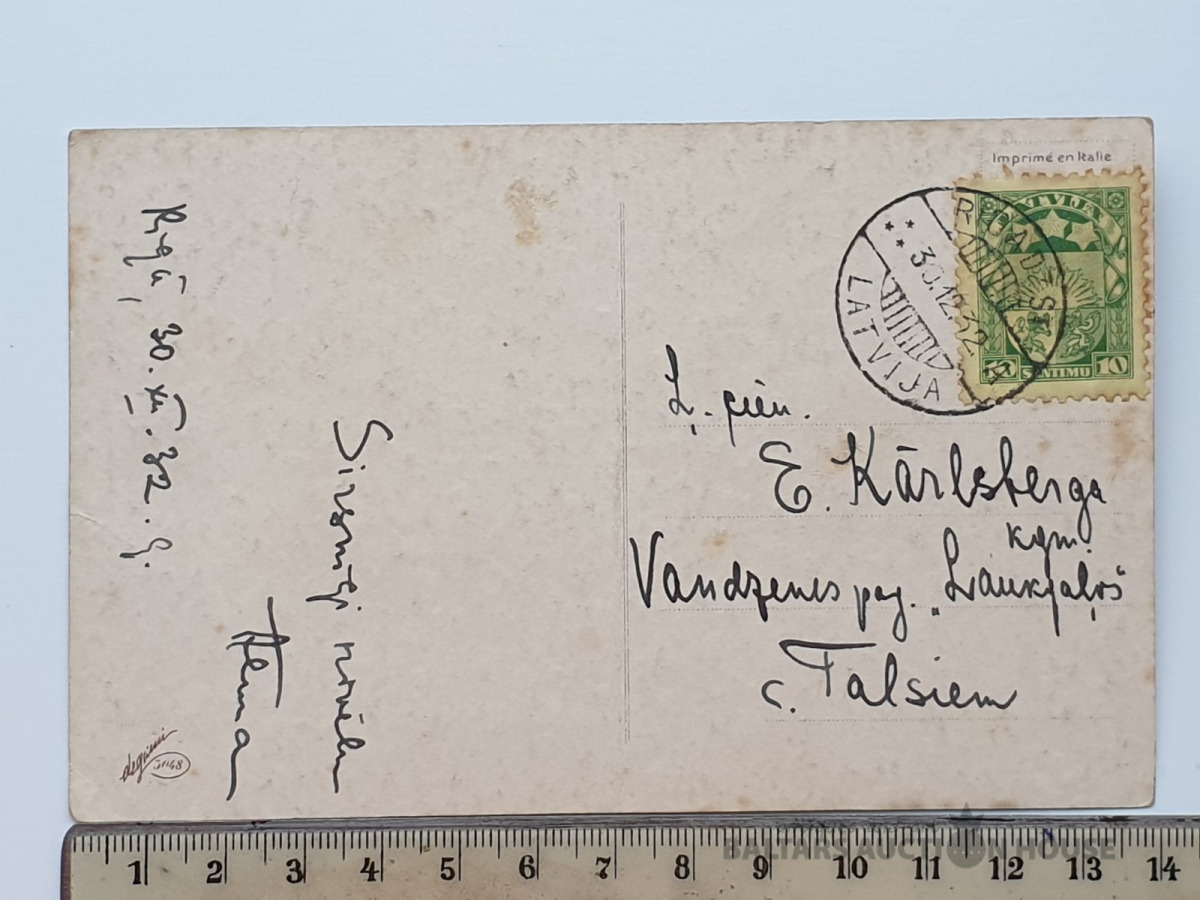 Rīgā, 30.XII.32.g.
Sirsnīgi novēlu
Imprimé en Italie
LATVIJA
SANTIMU 10
30.12.32
LATVIJA
Ļ. cien.
E. Kārlsberga
kgm.
Vandzenes pag. „Laukgaļos"
c. Talsiem
degami
1 2 3 4 5 6 7 8 9 10 11 12 13 14
BALTARS AUCTION HOUSE